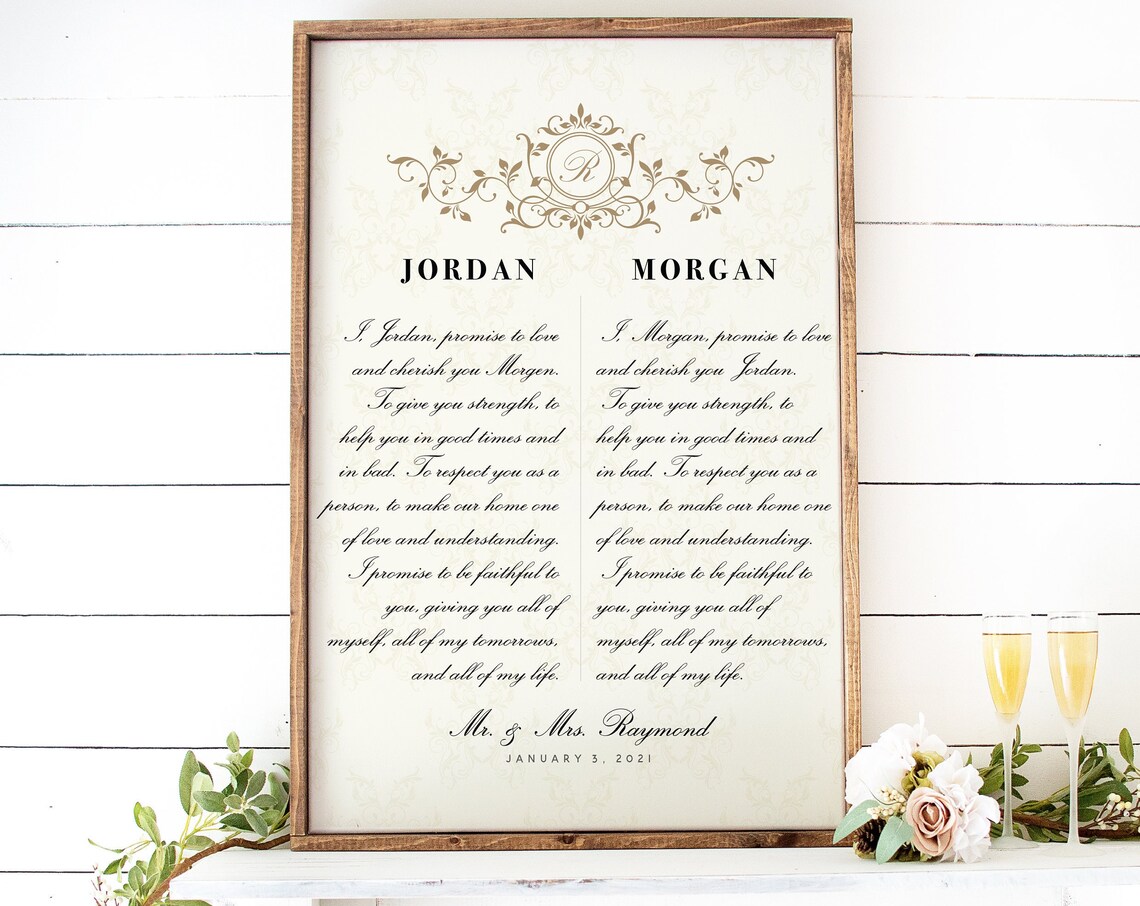 R
JORDAN
I, Jordan, promise to love
and cherish you Morgen.
To give you strength, to
help you in good times and
in bad. To respect you as a
person, to make our home one
of love and understanding.
I promise to be faithful to
you, giving you all of
myself, all of my tomorrows,
and all of my life.
MORGAN
I, Morgan, promise to love
and cherish you Jordan.
To give you strength, to
help you in good times and
in bad. To respect you as a
person, to make our home one
of love and understanding.
I promise to be faithful to
you, giving you all of
myself, all of my tomorrows,
and all of my life.
Mr. & Mrs. Raymond
JANUARY 3, 2021